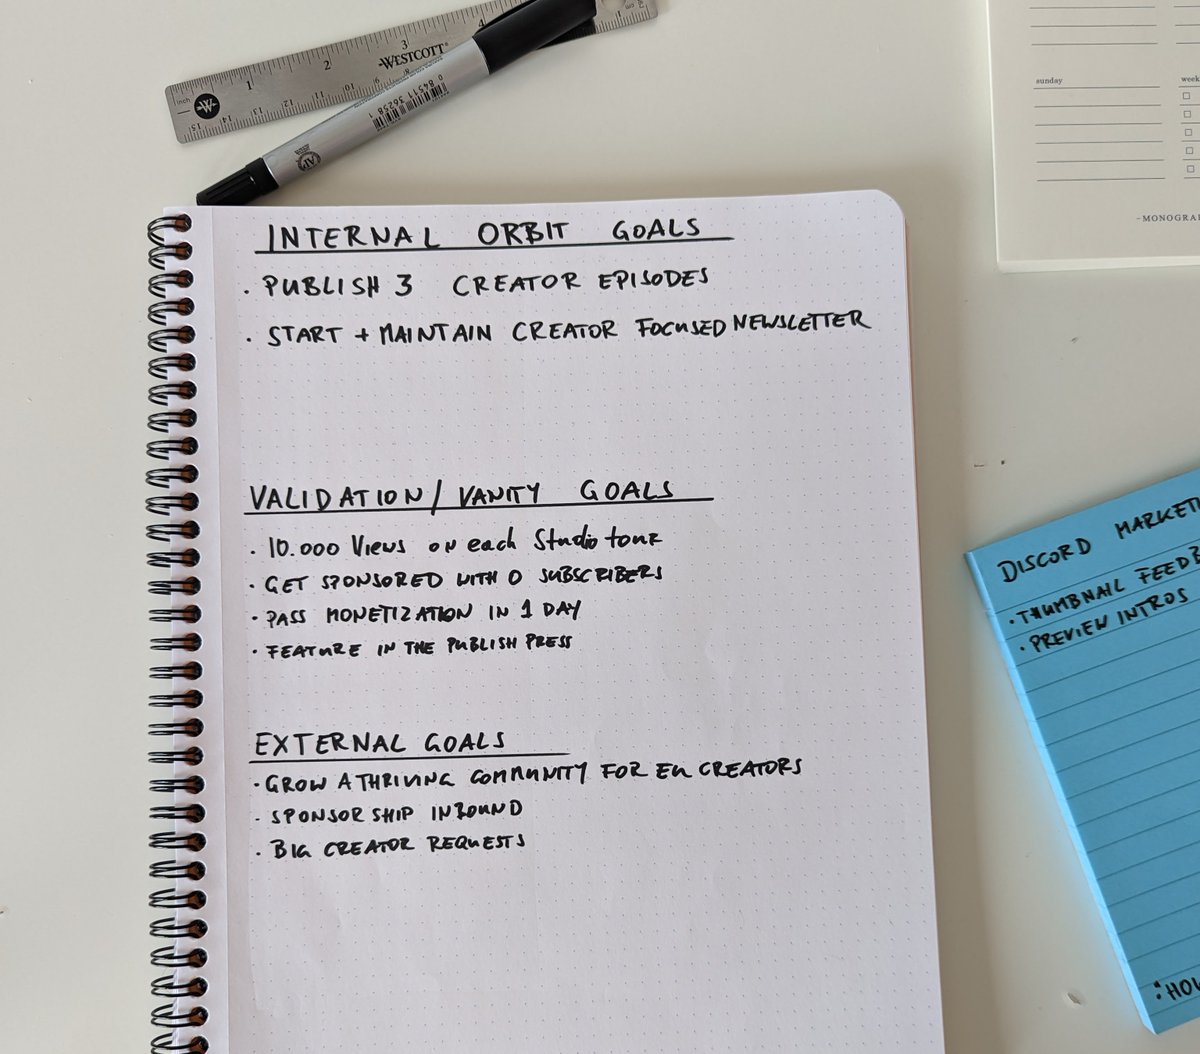 inch
1
2
3
4
WESTCOTT
W
15
14
13
12
11
10
9
8
0 84511 36258 1
AP
INTERNAL ORBIT GOALS
· PUBLISH 3 CREATOR EPISODES
· START + MAINTAIN CREATOR FOCUSED NEWSLETTER
VALIDATION/VANITY GOALS
· 10.000 Views on each Studio tour
· GET SPONSORED WITH 0 SUBSCRIBERS
· PASS MONETIZATION IN 1 DAY
· FEATURE IN THE PUBLISH PRESS
EXTERNAL GOALS
· GROW A THRIVING COMMUNITY FOR EU CREATORS
· SPONSORSHIP INBOUND
· BIG CREATOR REQUESTS
sunday
week
-MONOGRA
DISCORD MARKETI
· THUMBNAIL FEEDB
· PREVIEW INTROS
: HOW